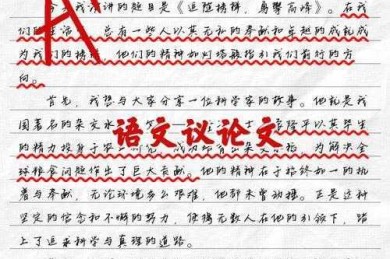 A
今天我演讲的题目是《追梦榜样,勇攀高峰》。在我
们的生活中,总有一些人以其无私的奉献和卓越的成就成
为我们的榜样,他们的精神如灯塔般指引我们前行的方
向。
首先,我想与大家分享一位科学家的故事。他就是我
国著名的杂交水
语文议论文
隆平以其毕生
的精力投身于农
为解决全
球粮食问题作出了巨大贡献。他的精神在于始终如一的执
着与奉献,无论环境多么艰难,他都未曾动摇。正是这种
坚定的信念和不懈的努力,使得无数人在他的引领下,踏
上了追求科学与真理的道路。